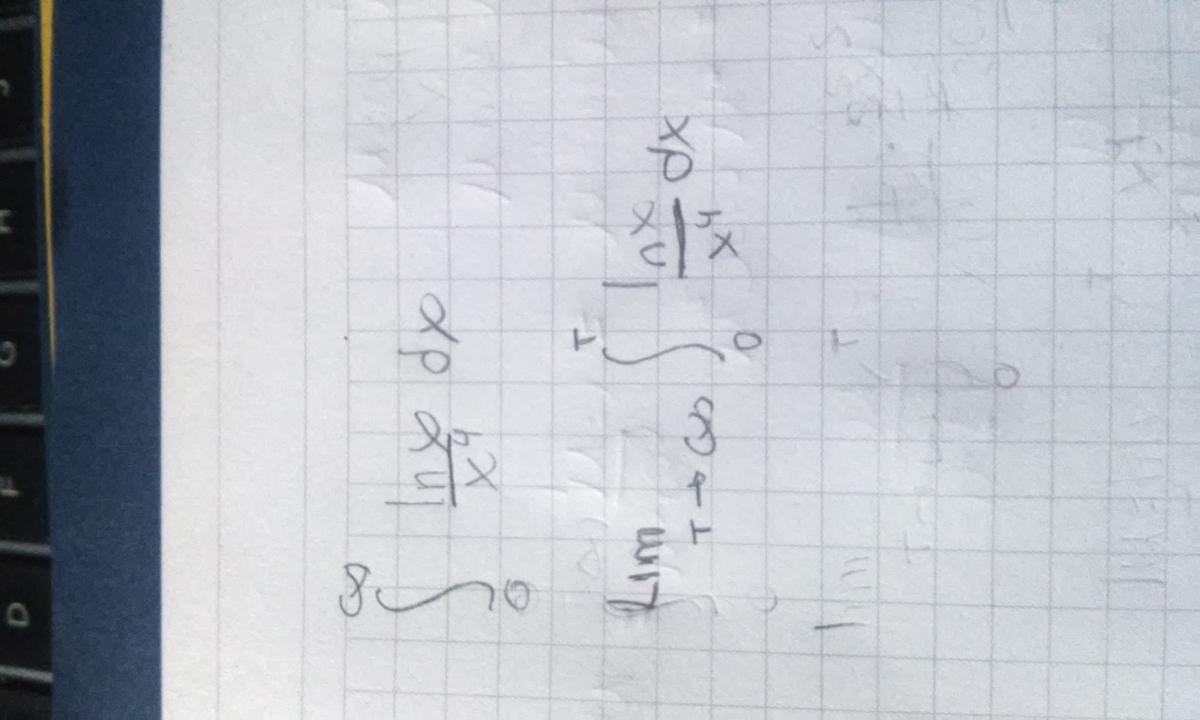 ∞ ∫ 0 ln x / x⁴ dx
Lim T→∞ T ∫ 0 ln x / x⁴ dx